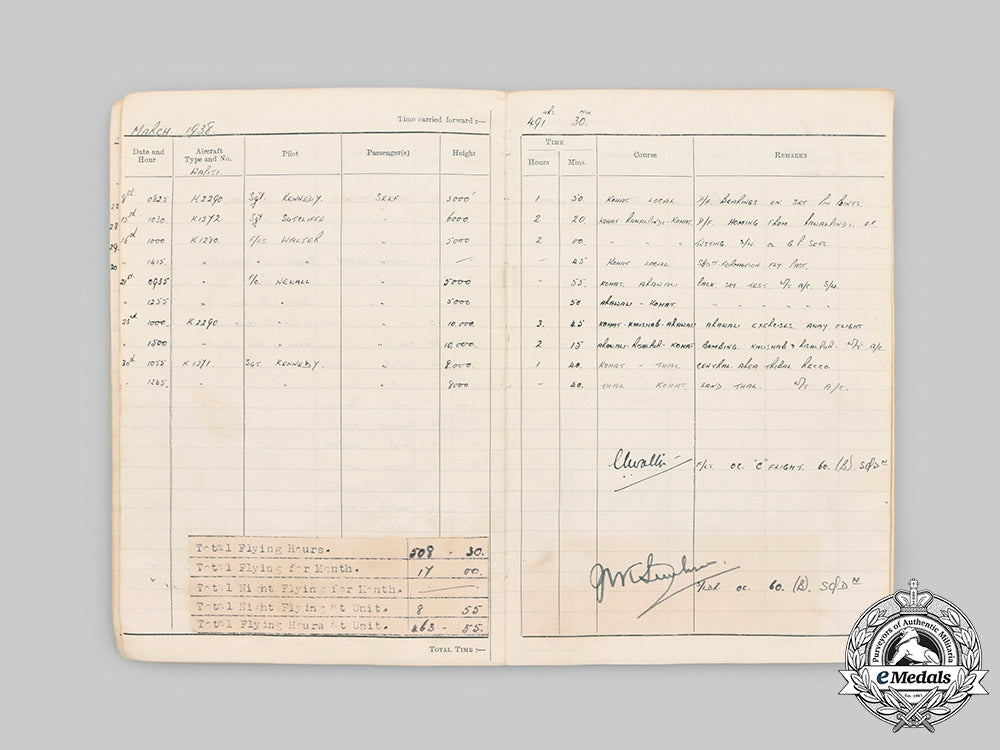 MARCH 1938
Time carried forward :—
Date and Hour Aircraft Type and No. Pilot Passenger(s) Height
WAPITI
8th 0825 K2290. Sgt KENNEDY. SELF. 5000'
15th 1030. K1272. Sgt SUTCLIFFE " 6000.
16th 1000. K1280. F/LT. WALTER. " 5000
" 1415. " " " —
21st 0935 " P/O. NEWALL " 5000
" 1255 " " " 5000
23rd 1000. K2290. " " 10,000.
" 1500 " " " 10,000.
1055 K1271. SGT. KENNEDY. " 8,000.
" 1245. " " " 7000
Total Flying Hours. 508 - 30.
Total Flying for Month. 17 00.
Total Night Flying for Month. —
Total Night Flying at Unit. 8 55
Total Flying Hours at Unit. 463 - 55.
TOTAL TIME :—
HRS. MIN
491 30.
TIME
Hours Mins. Course REMARKS
1 50. KOHAT LOCAL D/F. BEARINGS ON SET PIN POINTS.
2 20 KOHAT-RAWALPINDI-KOHAT. D/F. HOMING FROM RAWALPINDI.
2 00. " " " TESTING S/W. G.P. SETS.
- 45 KOHAT LOCAL SQDN FORMATION FLY PAST.
- 55. KOHAT. ARAWALI PACK SET. TEST. W/T A/C. S/W.
50 ARAWALI - KOHAT. " " " " "
3. 45 KOHAT-KHUSHAB-ARAWALI ARAWALI EXERCISES. AWAY FLIGHT
2 15 ARAWALI-RISALPUR-KOHAT BOMBING. KHUSHAB & RISALPUR. W/T A/C
1 40. KOHAT - THAL CENTRAL AREA TRIBAL RECCO.
- 40. THAL KOHAT. LAND THAL. W/T A/C.
F/LT. OC. "C" FLIGHT. 60. (B). SQDN
S/LDR. OC. 60. (B). SQDN
Purveyors of Authentic Militaria
eMedals